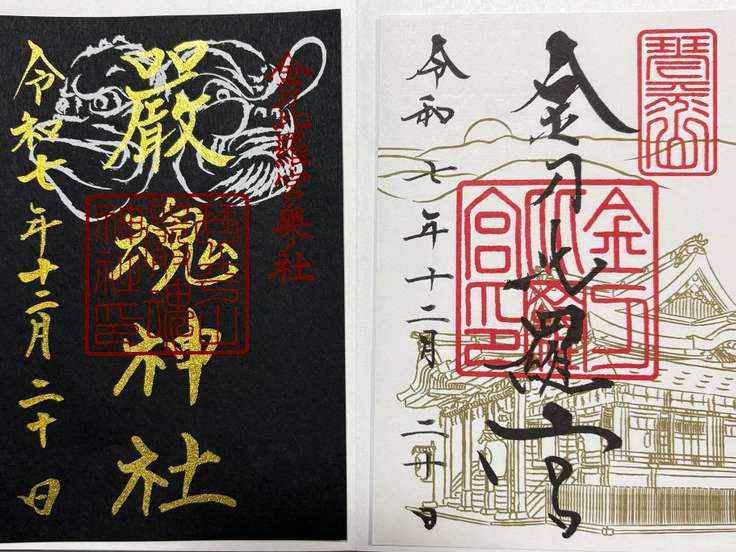 金刀比羅宮奥ノ社
嚴魂神社
令和七年十二月二十日
琴平山
金刀比羅宮
金刀比羅宮印
令和七年十二月二十日